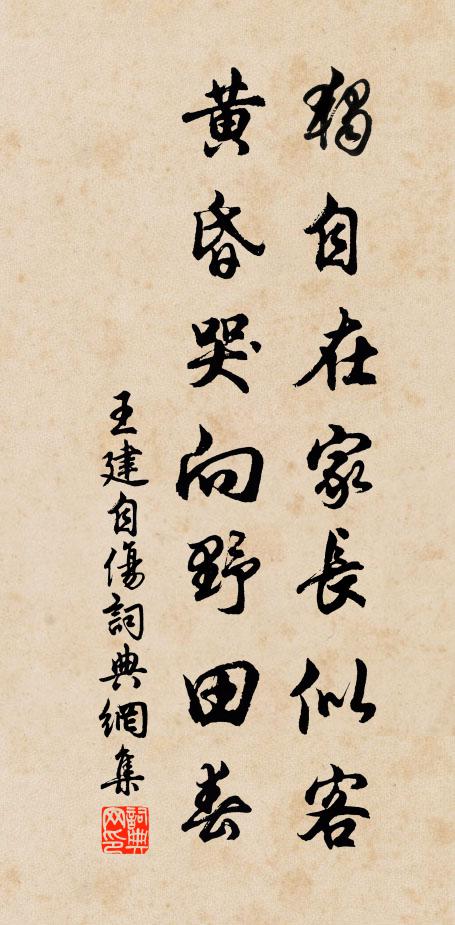 獨自在家長似客
黄昏哭向野田春
王建自傷詞典網集
詞典網印